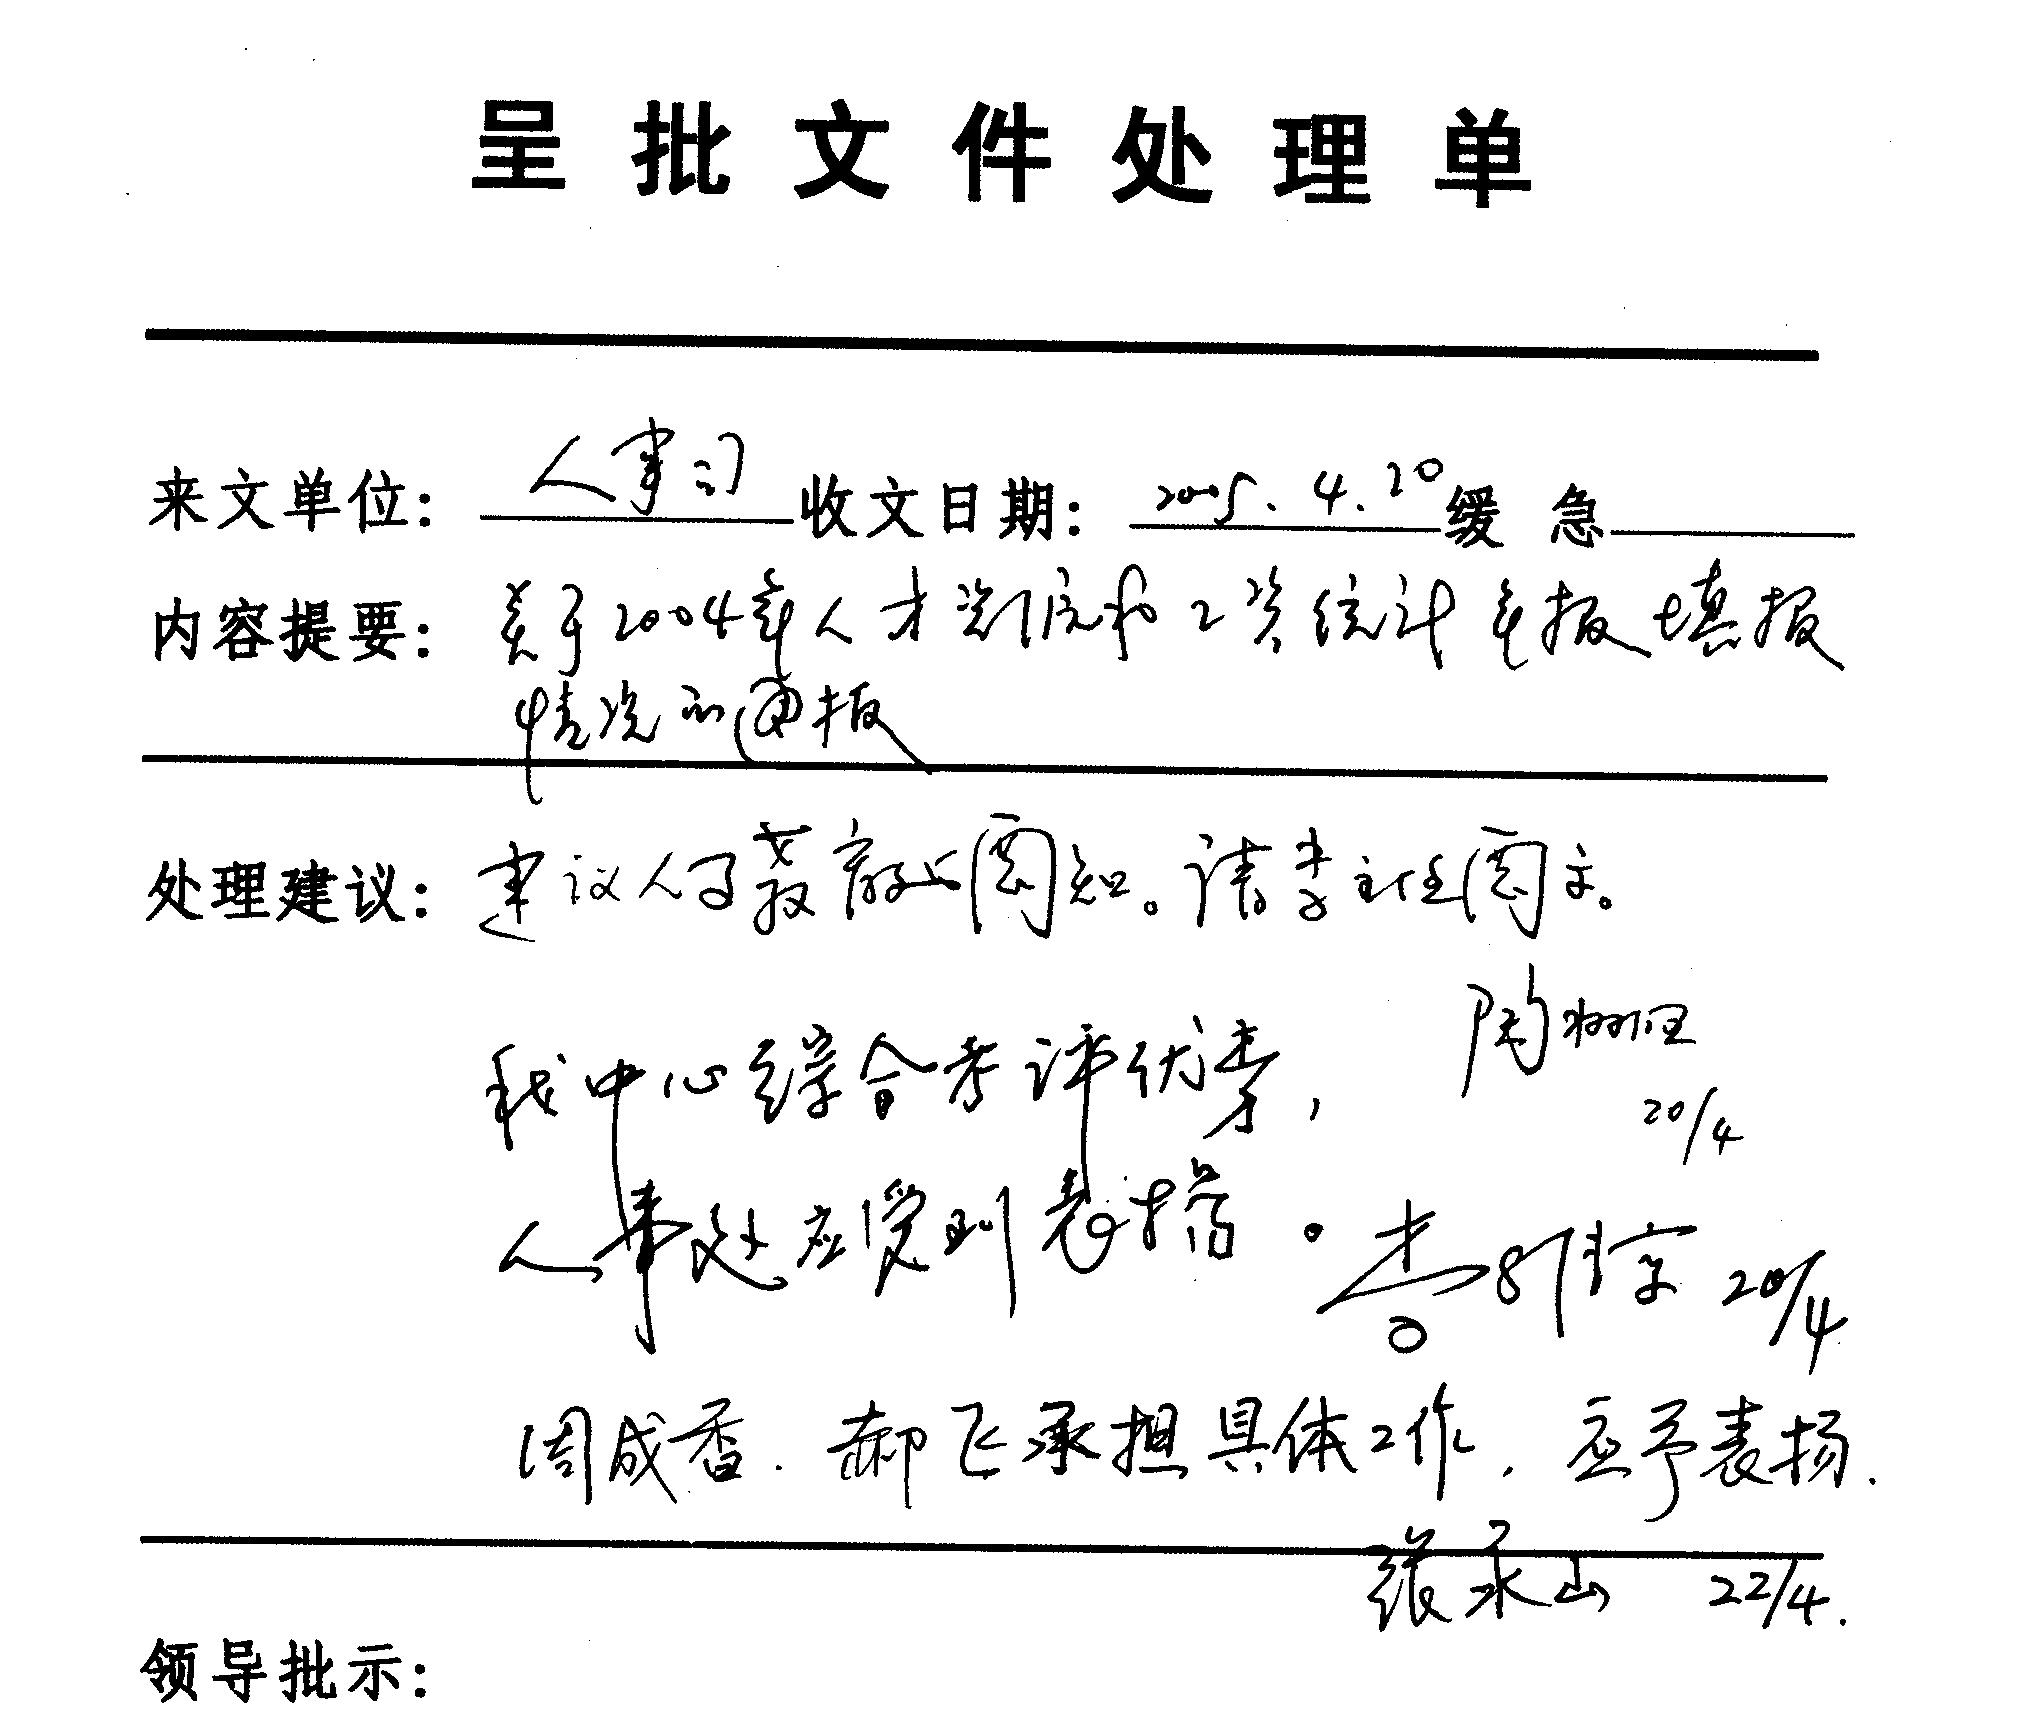 呈批文件处理单
来文单位: 人事司 收文日期: 2005.4.20 缓 急
内容提要: 关于2004年人才资源和工资统计年报填报
情况的通报
处理建议: 建议人事教育处阅知。请李主任阅示。
陶
20/4
我中心综合考评优秀,
人事处应受到表扬。 李 20/4
周成香.郝飞承担具体工作,应予表扬.
张永山 22/4.
领导批示: